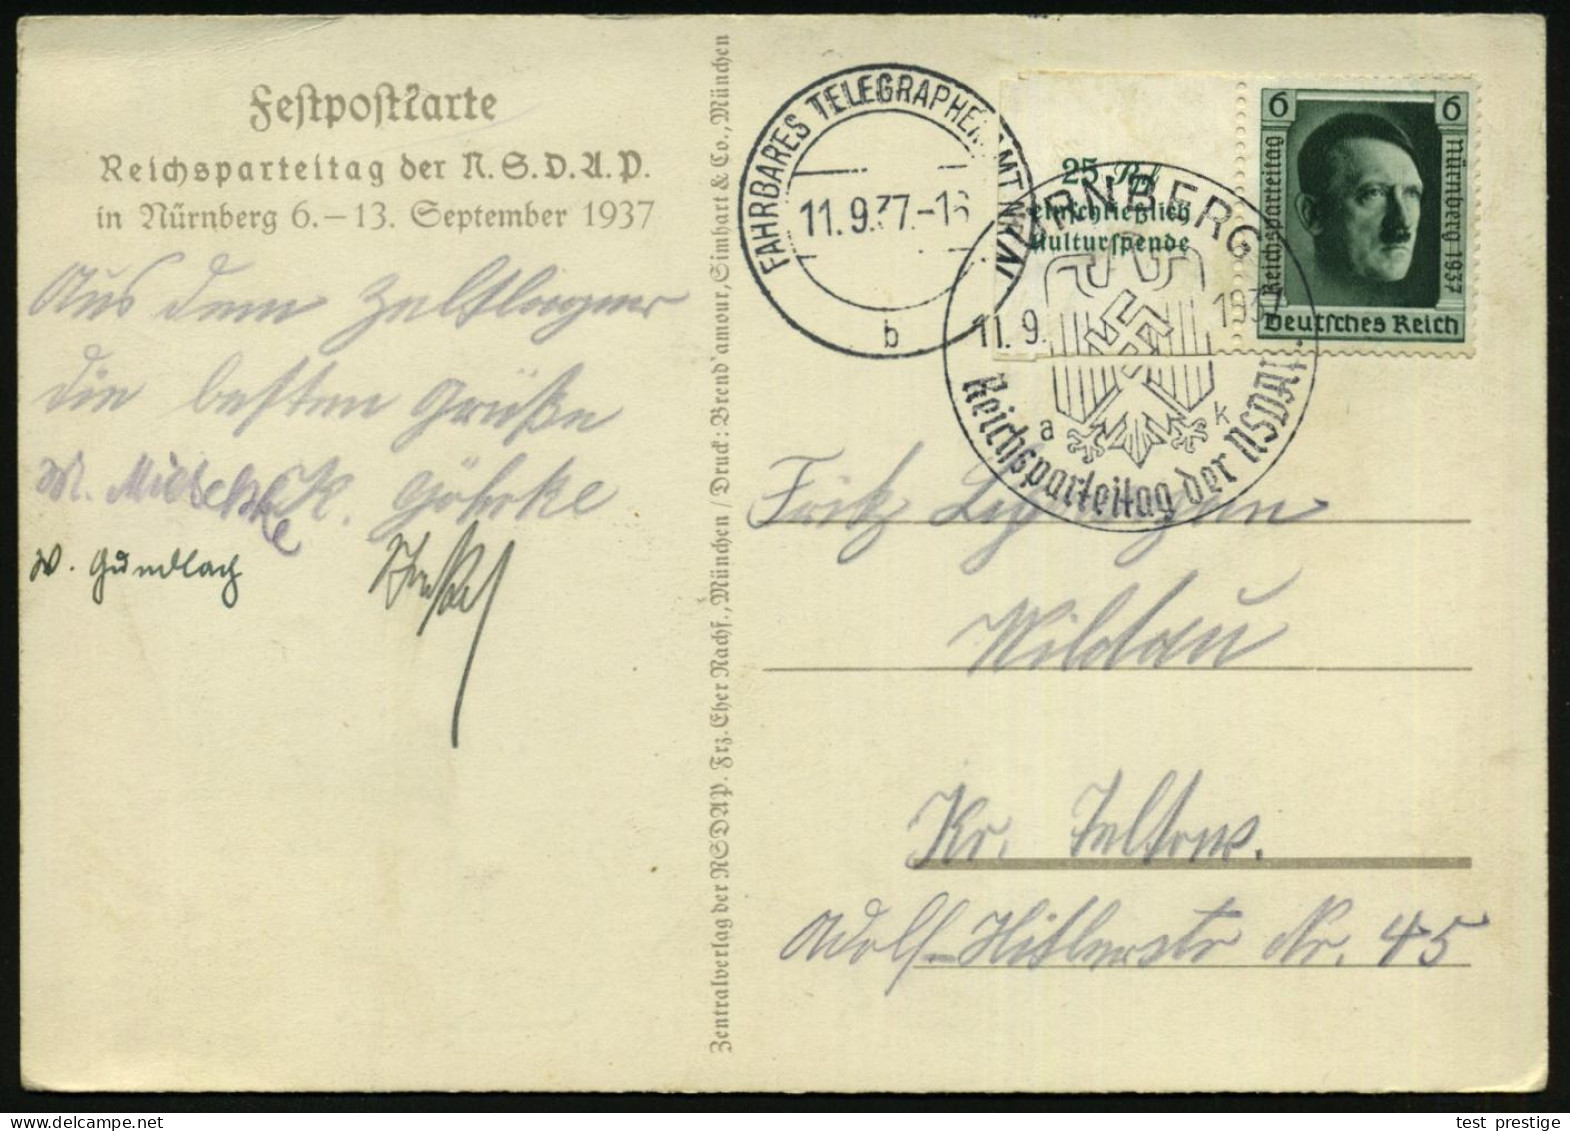 Festpostkarte
Reichsparteitag der N.S.D.A.P.
in Nürnberg 6.–13. September 1937
Aus dem Zeltlager
die besten Grüße
M. K. Göhrke
W. Gundlach
Zentralverlag der NSDAP. Frz. Eher Nachf., München / Druck: Brend'amour, Simhart & Co., München
FAHRBARES TELEGRAPHENAMT
11.9.37.-16
b
25 Rpf
einschließlich
Kulturspende
NÜRNBERG
11. 9. 1937
a k
Reichsparteitag der NSDAP.
6 6
Reichsparteitag
Nürnberg 1937
Deutsches Reich
Fritz
Wildau
Kr. Teltow.
Adolf-Hitlerstr Nr. 45
test prestige